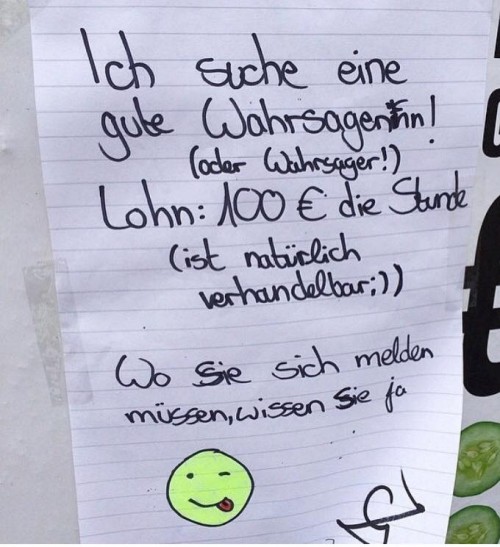 Ich suche eine
gute Wahrsagerin!
(oder Wahrsager!)
Lohn: 100 € die Stunde
(ist natürlich
verhandelbar;))
Wo Sie sich melden
müssen, wissen Sie ja